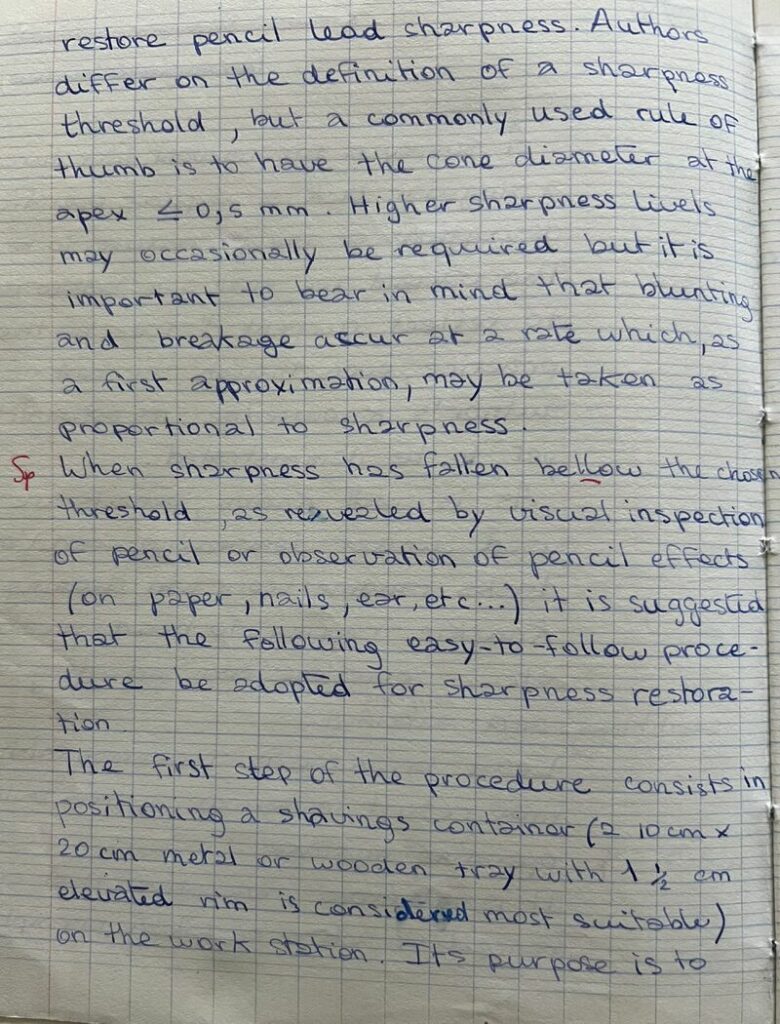 restore pencil lead sharpness. Authors
differ on the definition of a sharpness
threshold, but a commonly used rule of
thumb is to have the cone diameter at the
apex ≤ 0,5 mm. Higher sharpness livels
may occasionally be required but it is
important to bear in mind that blunting
and breakage accur at a rate which, as
a first approximation, may be taken as
proportional to sharpness.
Sp When sharpness has fallen bellow the chosen
threshold, as revealed by visual inspection
of pencil or observation of pencil effects
(on paper, nails, ear, etc...) it is suggested
that the following easy-to-follow proce-
dure be adopted for sharpness restora-
tion.
The first step of the procedure consists in
positioning a shavings container (a 10 cm x
20 cm metal or wooden tray with 1 ½ cm
elevated rim is considered most suitable)
on the work station. Its purpose is to